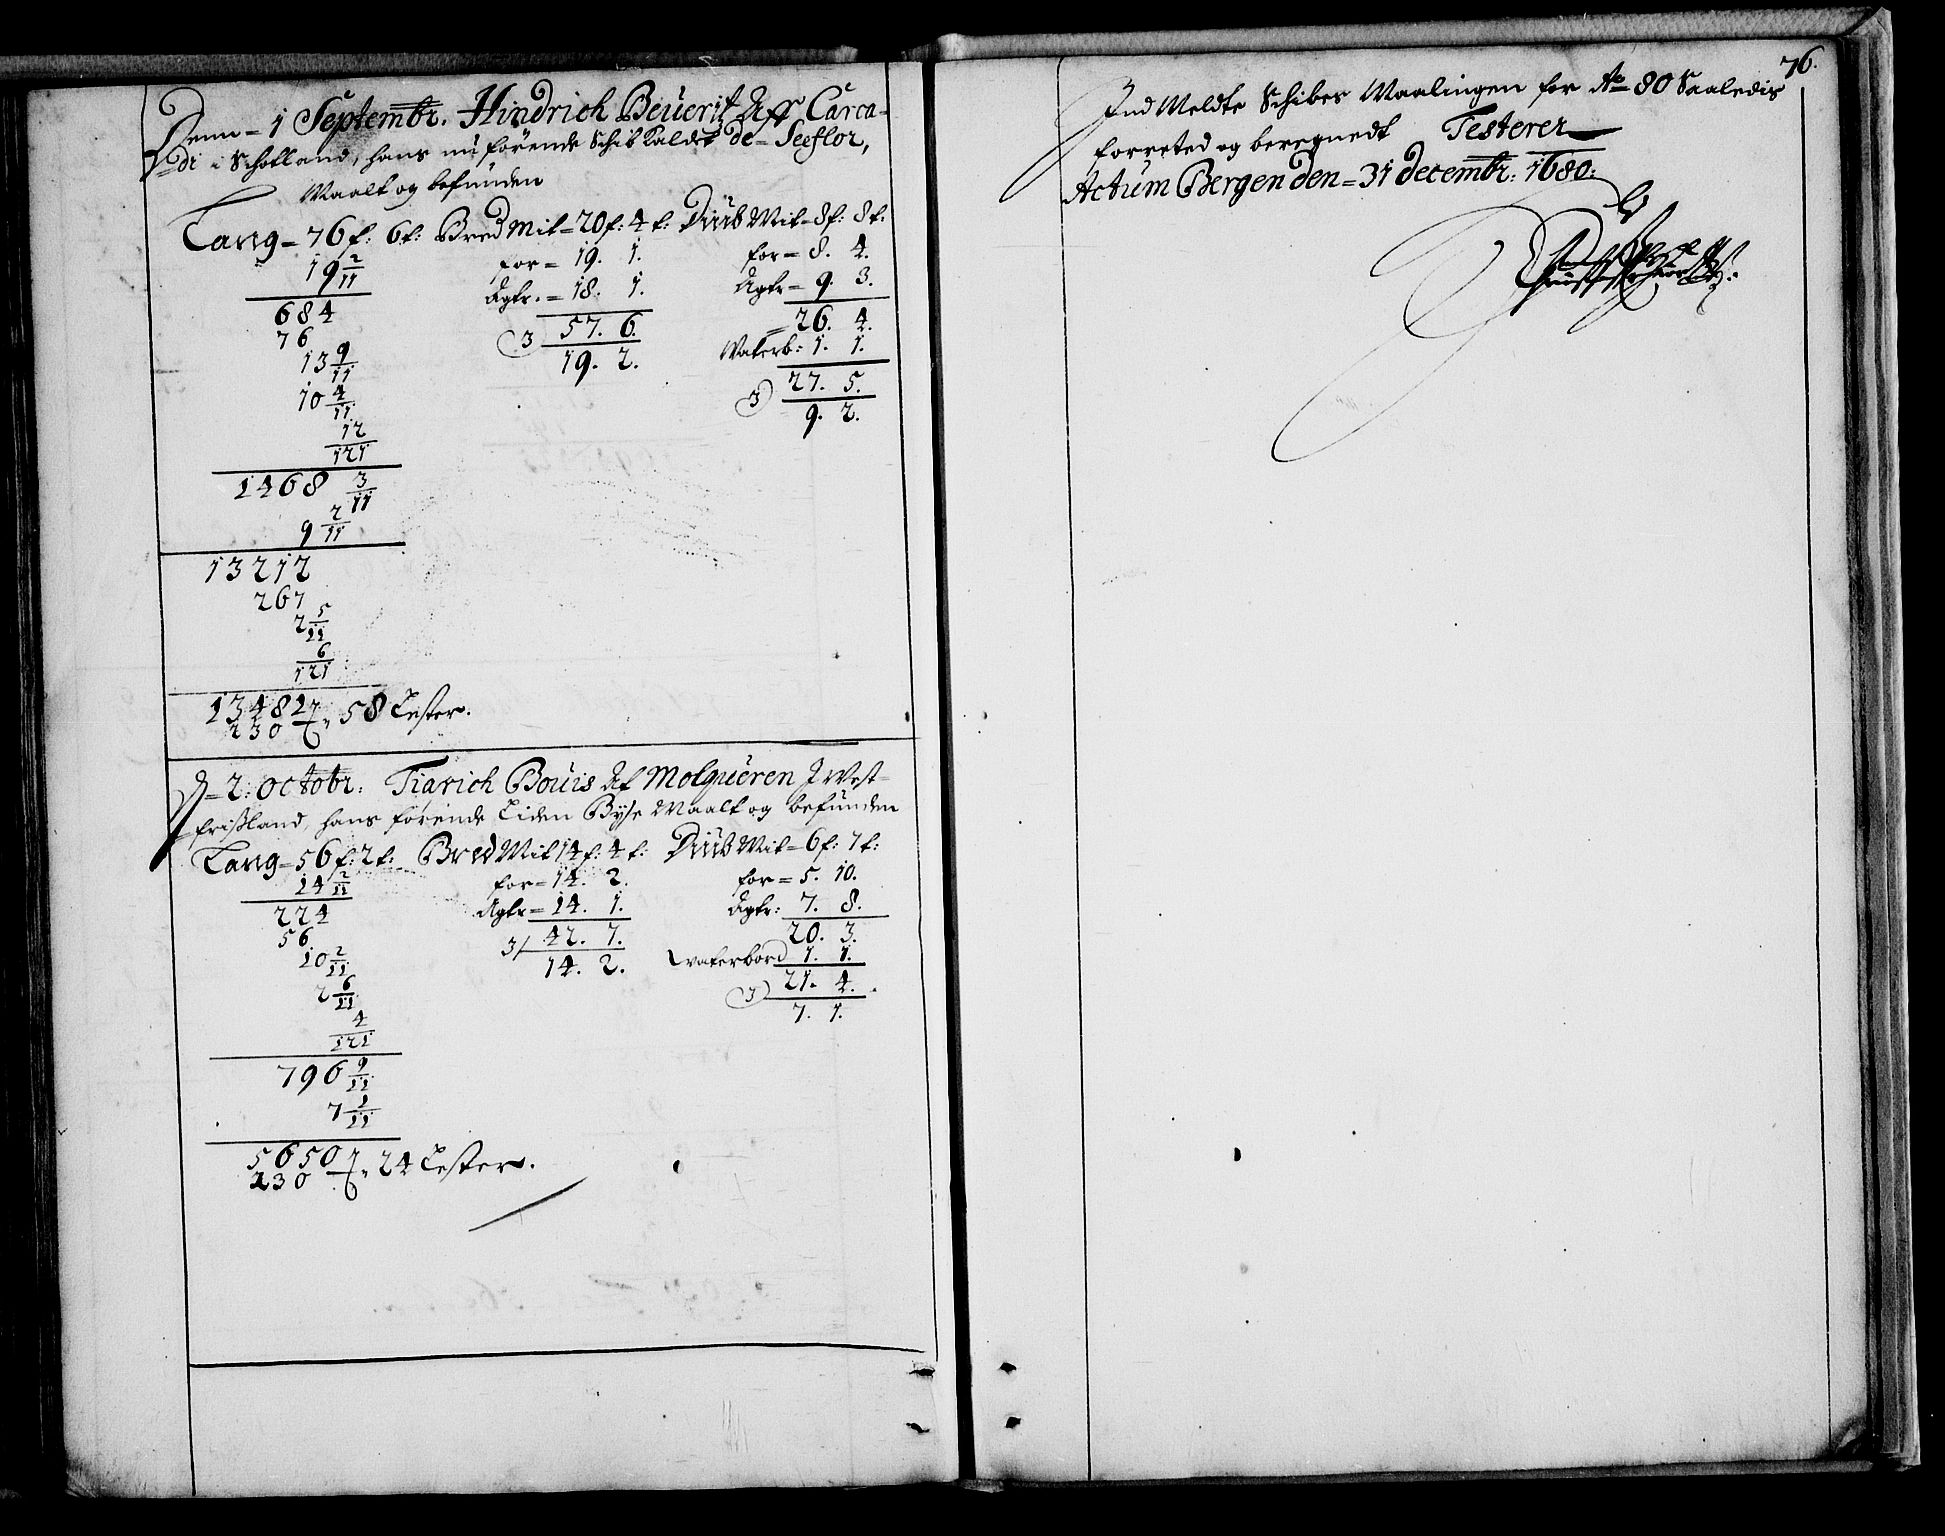 Denn = 1 Septembr. Hindrich Beuerit Aff Carca-
di i Schottland, hans nu förende Schib Kaldet de = Seeflor,
Maalt og befunden
Lang = 76 f: 6 t: Bred Mit = 20 f: 4 t: Diüb Mit = 8 f: 8 t:
19 2/11 for = 19. 1. for = 8. 4.
684 Agtr. = 18. 1. Agtr = 9. 3.
76 57. 6. 26. 4.
13 9/11 3 19. 2. Waterb: 1. 1.
10 4/11 27. 5.
12/121 3 9. 2.
1468 3/11
9 2/11
13212
267
2 5/11
6/121
13482
230 58 Lester.
D = 2: Octobr: Tiarich Bouis Af Molqueren J West=
frisland, hans förende Liden Byse Maalt og befunden
Lang = 56 f: 2 t: Bred Mit 14 f: 4 t: Diüb Mit = 6 f: 7 t:
14 2/11 for = 14. 2. for = 5. 10.
224 Agtr = 14. 1. Agtr: 7. 8.
56 42. 7. 20. 3.
10 2/11 3 14. 2. Waterbord 1. 1.
2 6/11 21. 4.
4/121 3 7. 1.
796 9/11
7 1/11
5650
230 24 Lester.
76.
Ind Meldte Schibes Maalingen for Ao 80 Saaledis
forreted og beregnedt Testerer
Actum Bergen den = 31 decembr: 1680: